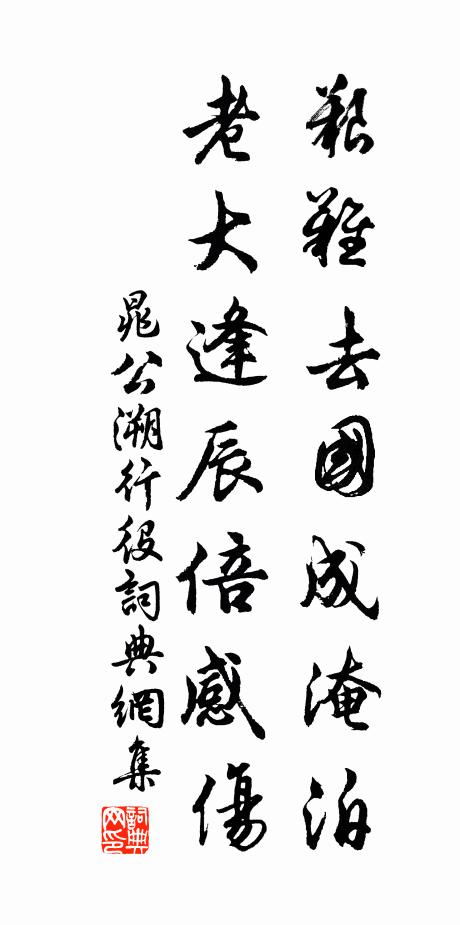 艱難去國成淹泊
老大逢辰倍感傷
晁公溯行役詞典網集
詞典網印